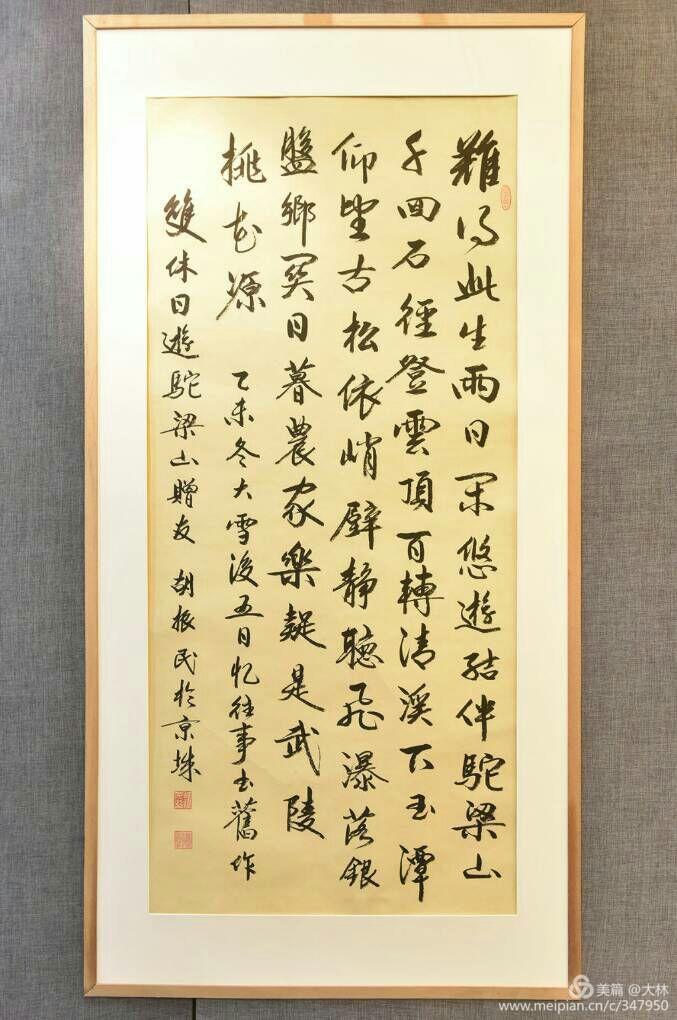 難得此生兩日閑悠遊結伴駝梁山
千回石徑登雲頂百轉清溪下玉潭
仰望古松依峭壁静聽飛瀑落銀
盤鄉關日暮農家樂疑是武陵
桃花源 乙未冬大雪後五日忆往事书舊作
雙休日遊駝梁山贈友 胡振民於京城
美篇 @大林
www.meipian.cn/c/347950